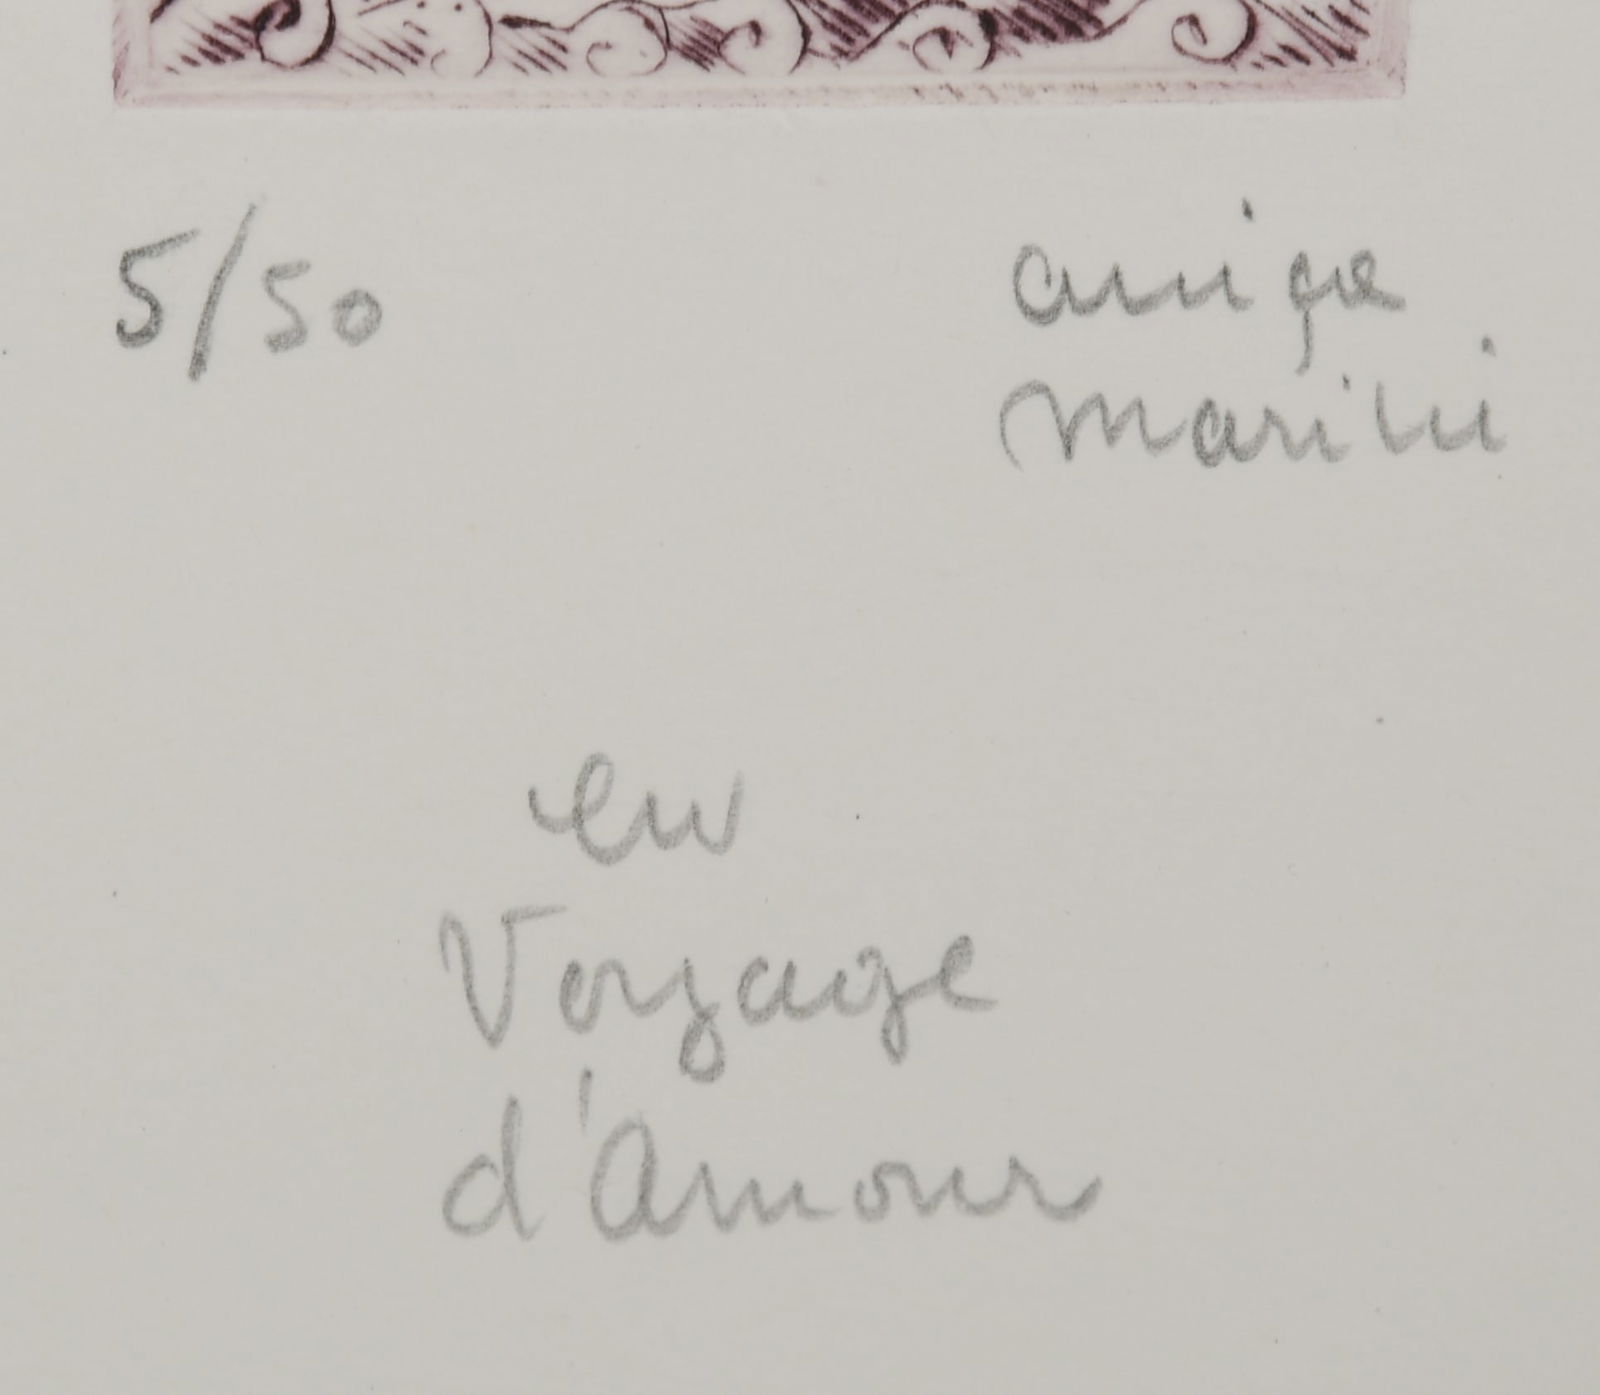 5/50
arriga
marini
en
Voyage
d'Amour